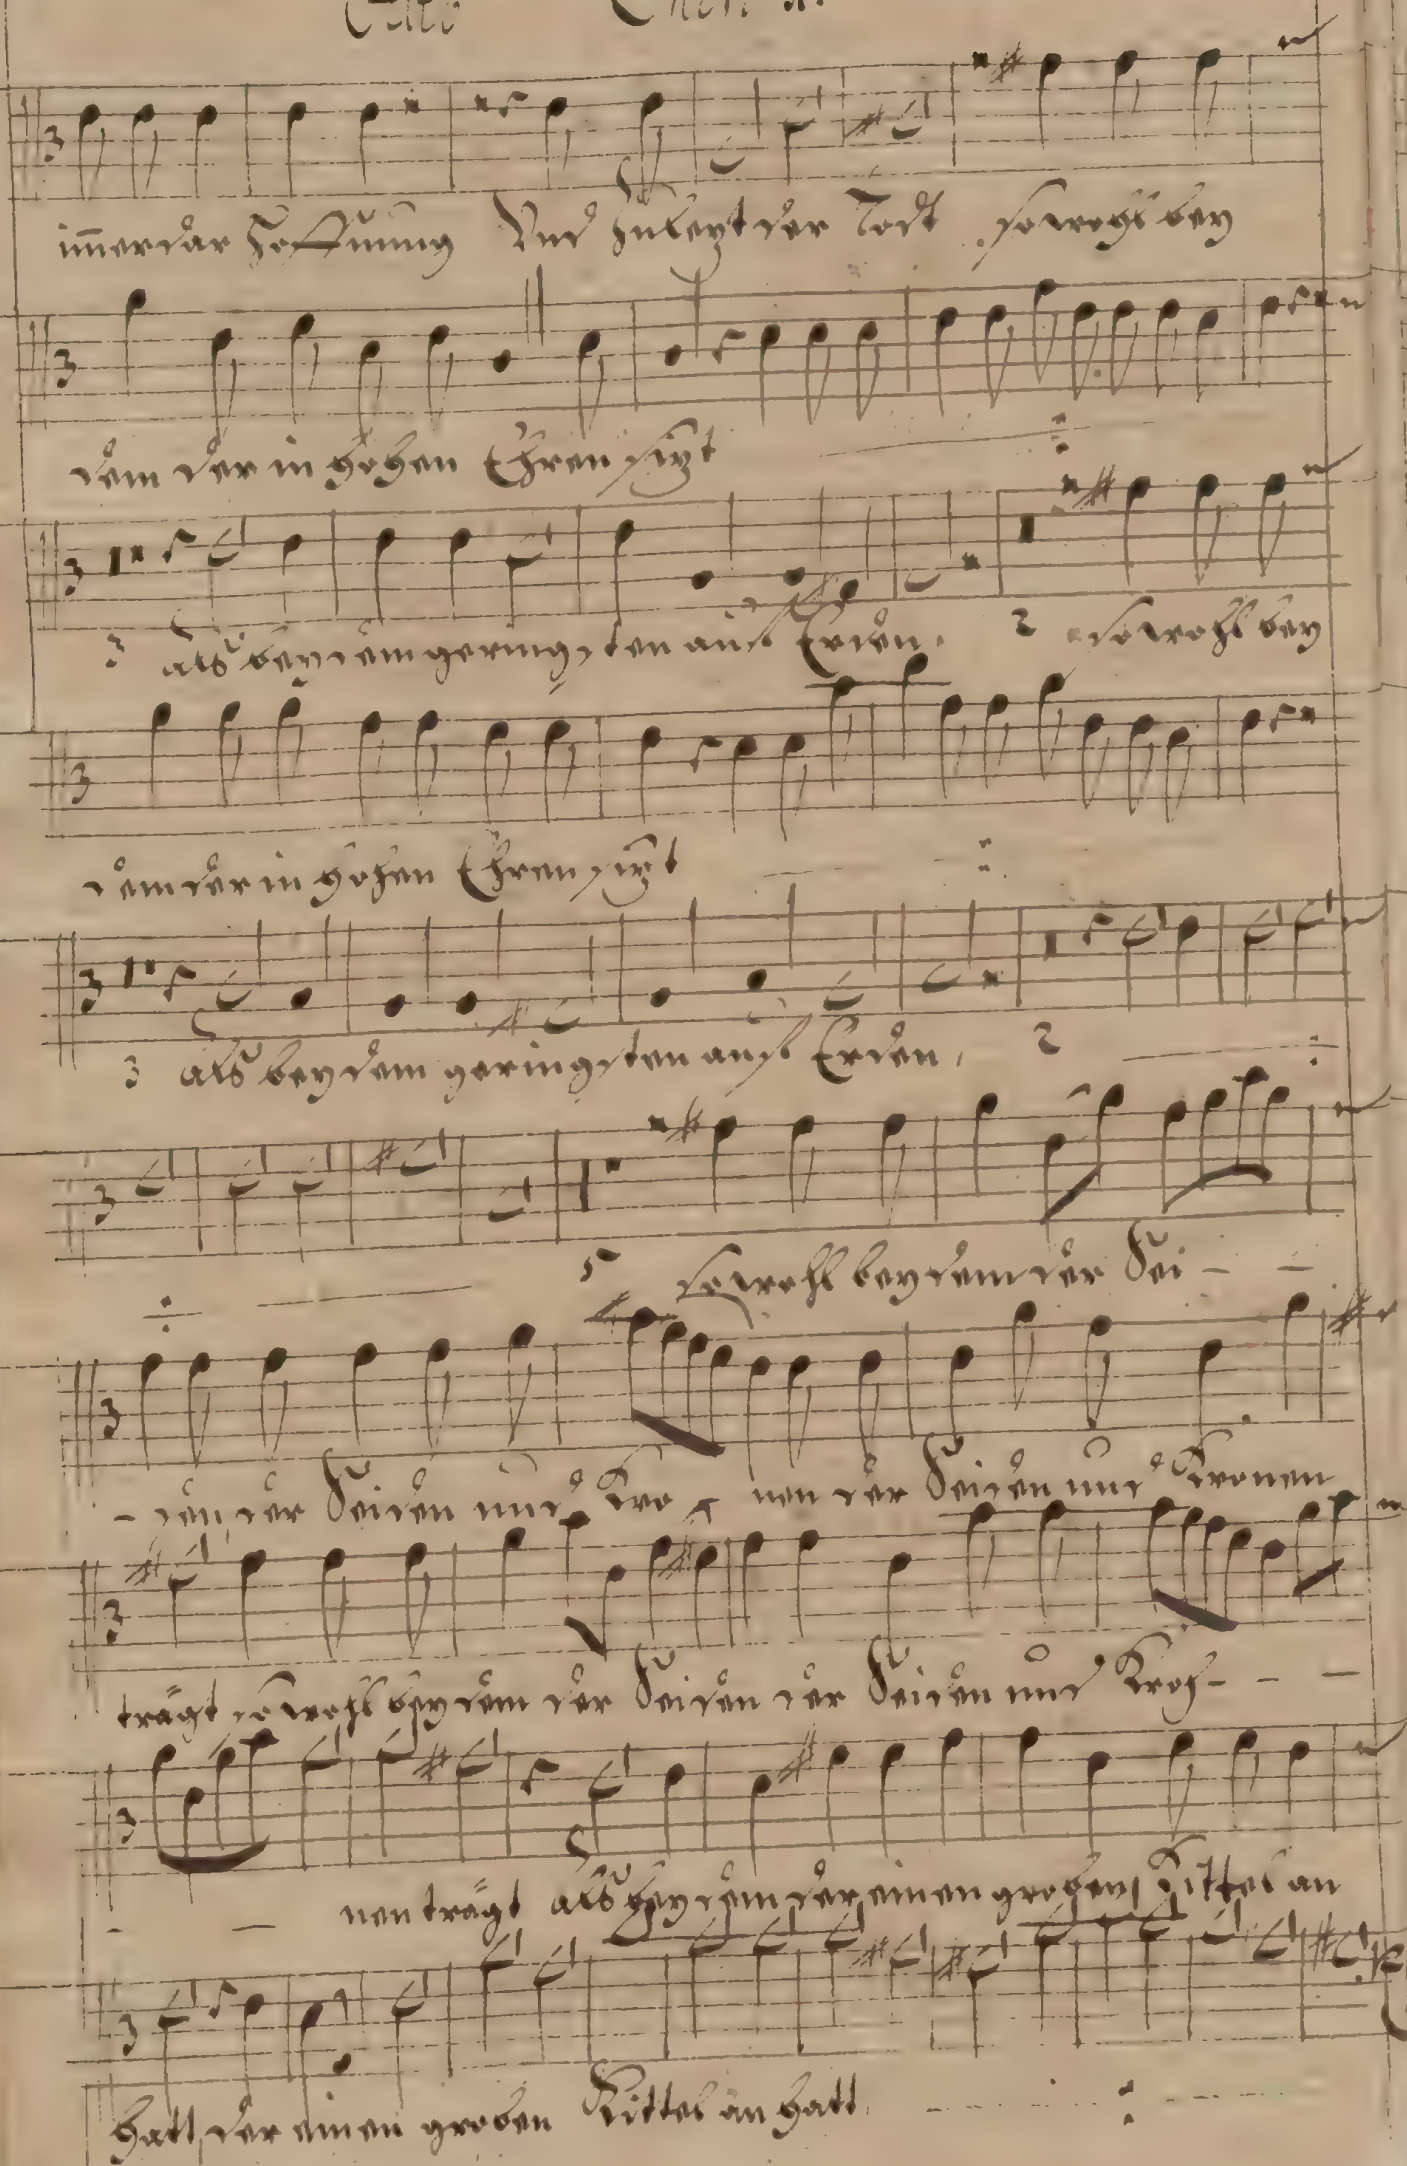 im̄erdar Hoffnung Vnd zulezt der Todt sowohl bey
dem der in hohen Ehren sizt
3 als bey dem geringsten auf Erden. 2 sowohl bey
dem der in hohen Ehren sizt
3 als bey dem geringsten auf Erden, 2
5 sowohl bey dem der Sei - -
- den der Seiden und Kro - nen der Seiden und Kronen
trägt sowohl bey dem der Seiden der Seiden und Kroh - - -
- - nen trägt als bey dem der einen groben Kittel an
hatt, der einen groben Kittel an hatt